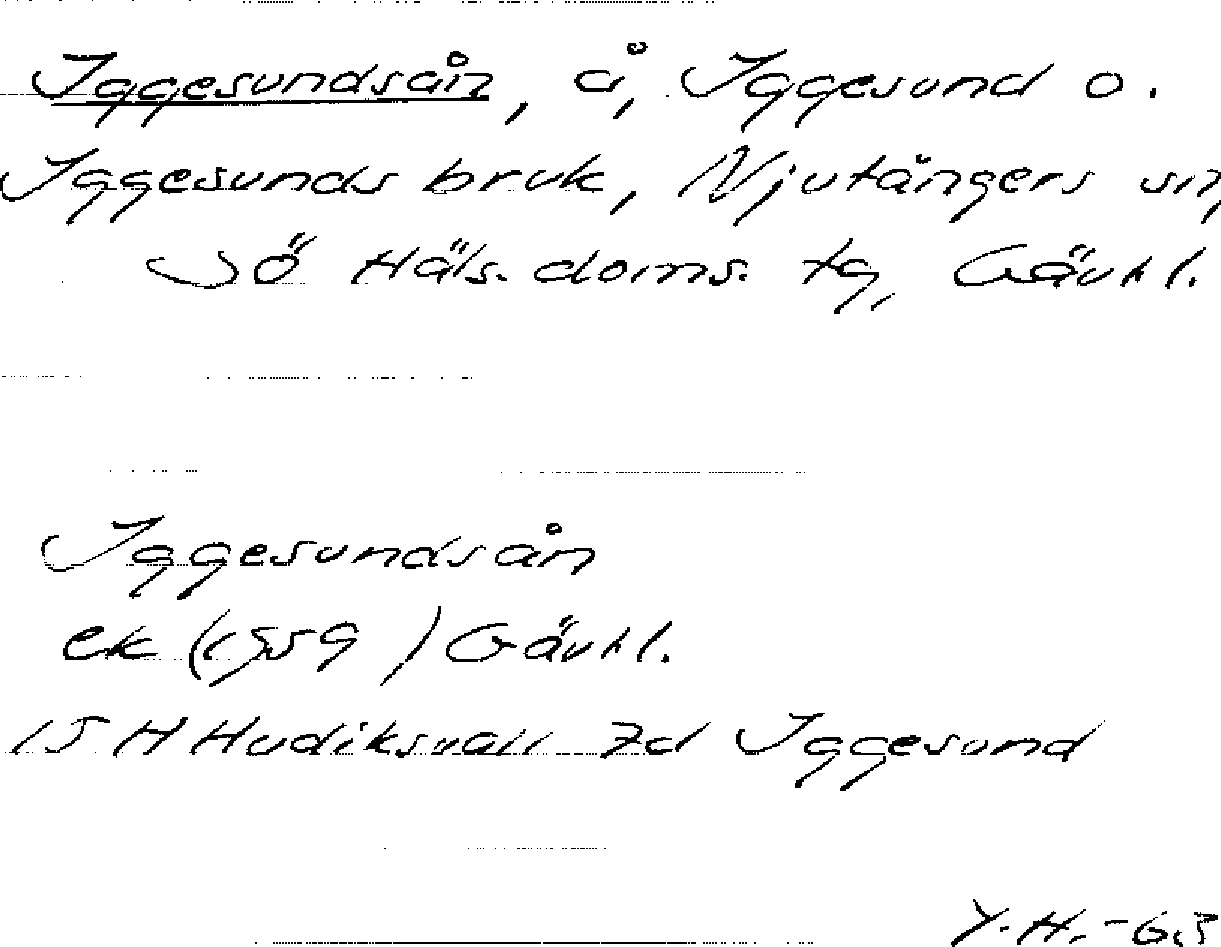 Iggesundsån, å, Iggesund o.
Iggesunds bruk, Njutångers sn,
SÖ Häls. doms. tg, Gävhl.
Iggesundsån
ek (1959) Gävhl.
15 H Hudiksvall 7d Iggesund
Y.H. -63